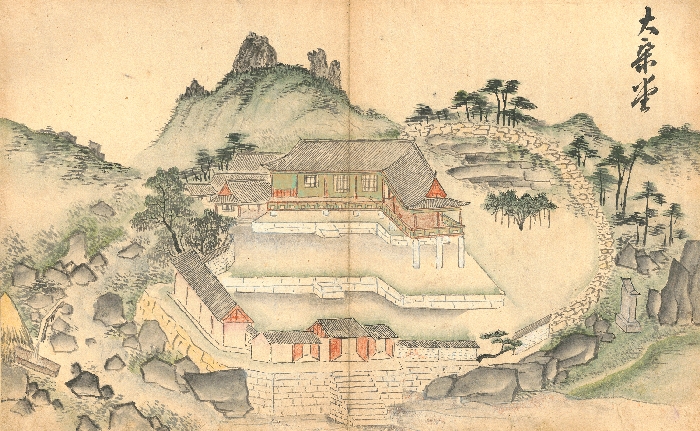 大乘堂